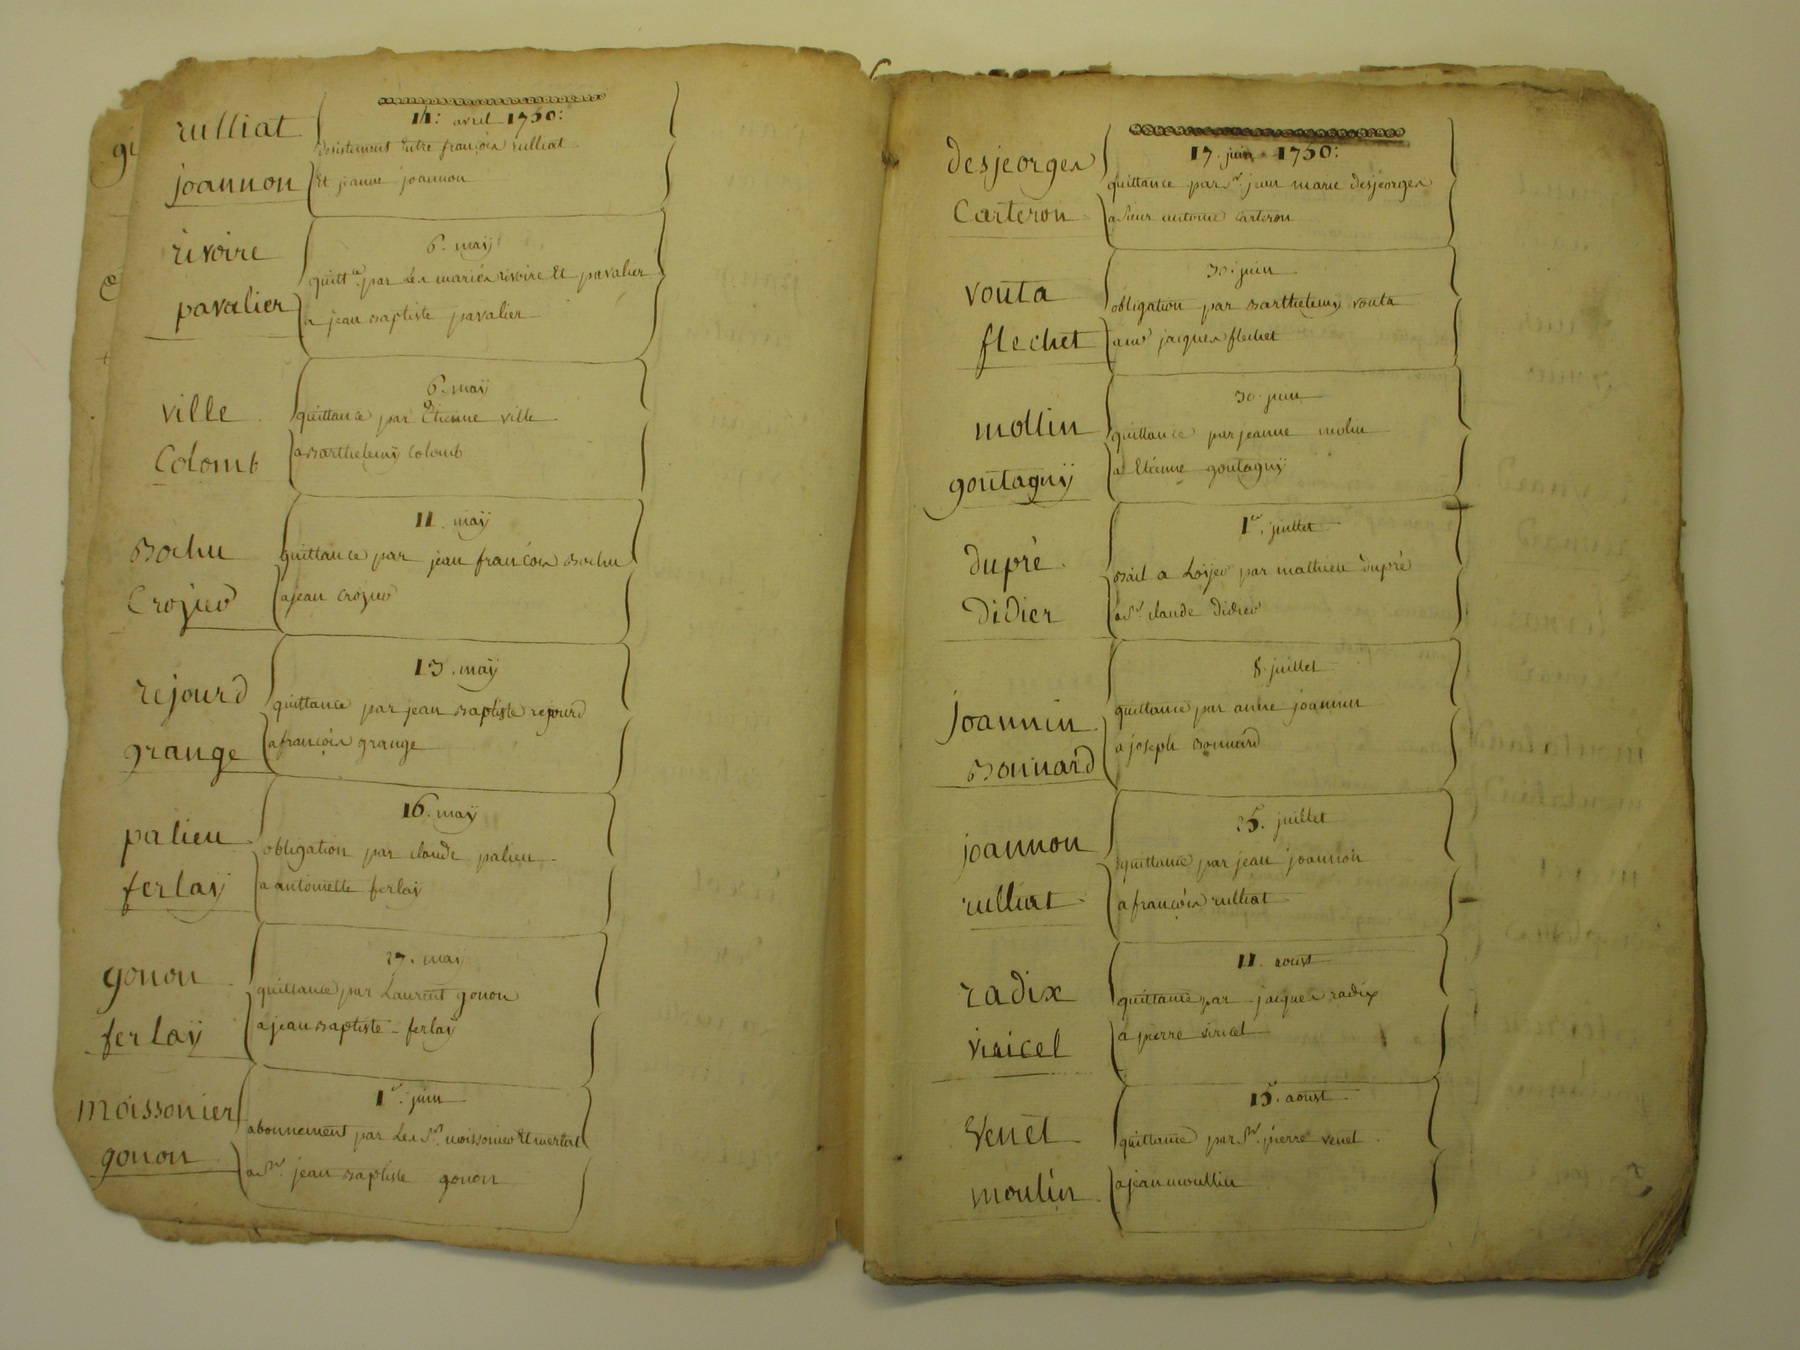 rulliat
joannon
14: avril 1750:
desistement Entre françois rulliat
Et jeanne joannon
rivoire
pavalier
6. maÿ
quitt.ce par Les mariés rivoire Et pavalier
a jean Baptiste pavalier
ville
Colomb
6. maÿ
quittance par Etienne ville
a Barthelemÿ Colomb
Bochu
Crozier
11. maÿ
quittance par jean françois Bochu
a jean Crozier
rejourd
grange
13. maÿ
quittance par jean Baptiste rejourd
a françois grange
palieu
ferlaÿ
16. maÿ
obligation par claude palieu
a antoinette ferlaÿ
gonon
ferlaÿ
27. mai
quittance par Laurent gonon
a jean Baptiste ferlaÿ
moissonier
gonon
1er. juin
abonnement par Les Srs. moissonier Et
a Sr. jean Baptiste gonon
desjeorges
Carteron
17. juin 1750:
quittance par Sr. jean marie desjeorges
a Sieur antoine Carteron
vouta
flechet
30. juin
obligation par Barthelemy vouta
a jacques flechet
mollin
goutagnÿ
30. juin
quittance par jeanne molin
a Etienne goutagnÿ
dupré
Didier
1er. juillet
Bail a Loÿer par mathieu dupré
a Sr. claude Didier
joannin
Bonnard
8. juillet
quittance par anne joannin
a joseph Bonnard
joannon
rulliat
25. juillet
quittance par jean joannon
a françois rulliat
radix
viricel
11. aoust
quittance par jacques radix
a pierre viricel
Venet
moulin
15. aoust
quittance par Sr. pierre venet
a jean moullin